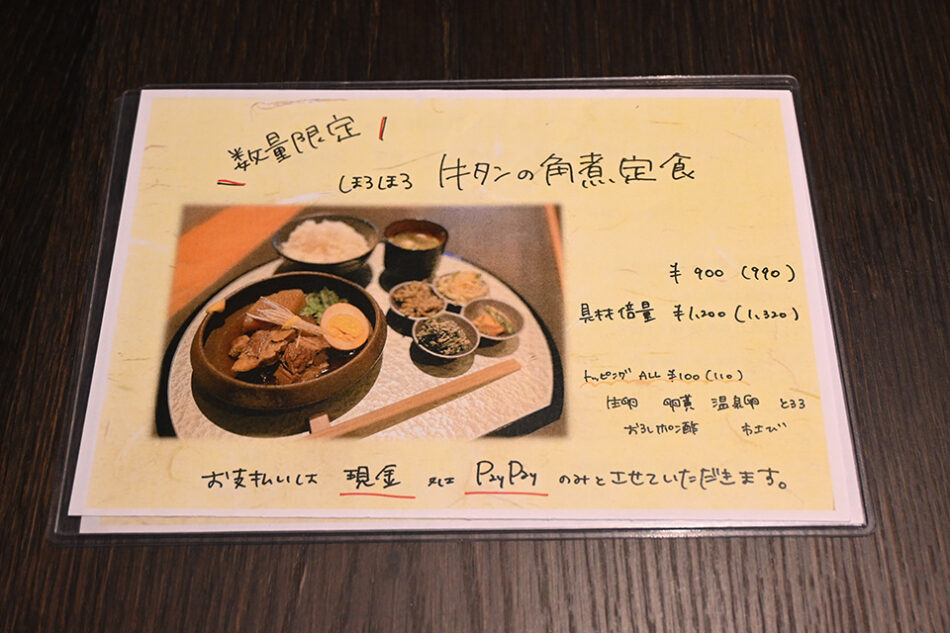 数量限定!
ほろほろ 牛タンの角煮定食
¥900(990)
具材倍量 ¥1,200(1,320)
トッピング ALL ¥100(110)
生卵 明太 温泉卵 とろろ
おろしポン酢 わさび
お支払いは 現金 又は PayPay のみとさせていただきます。